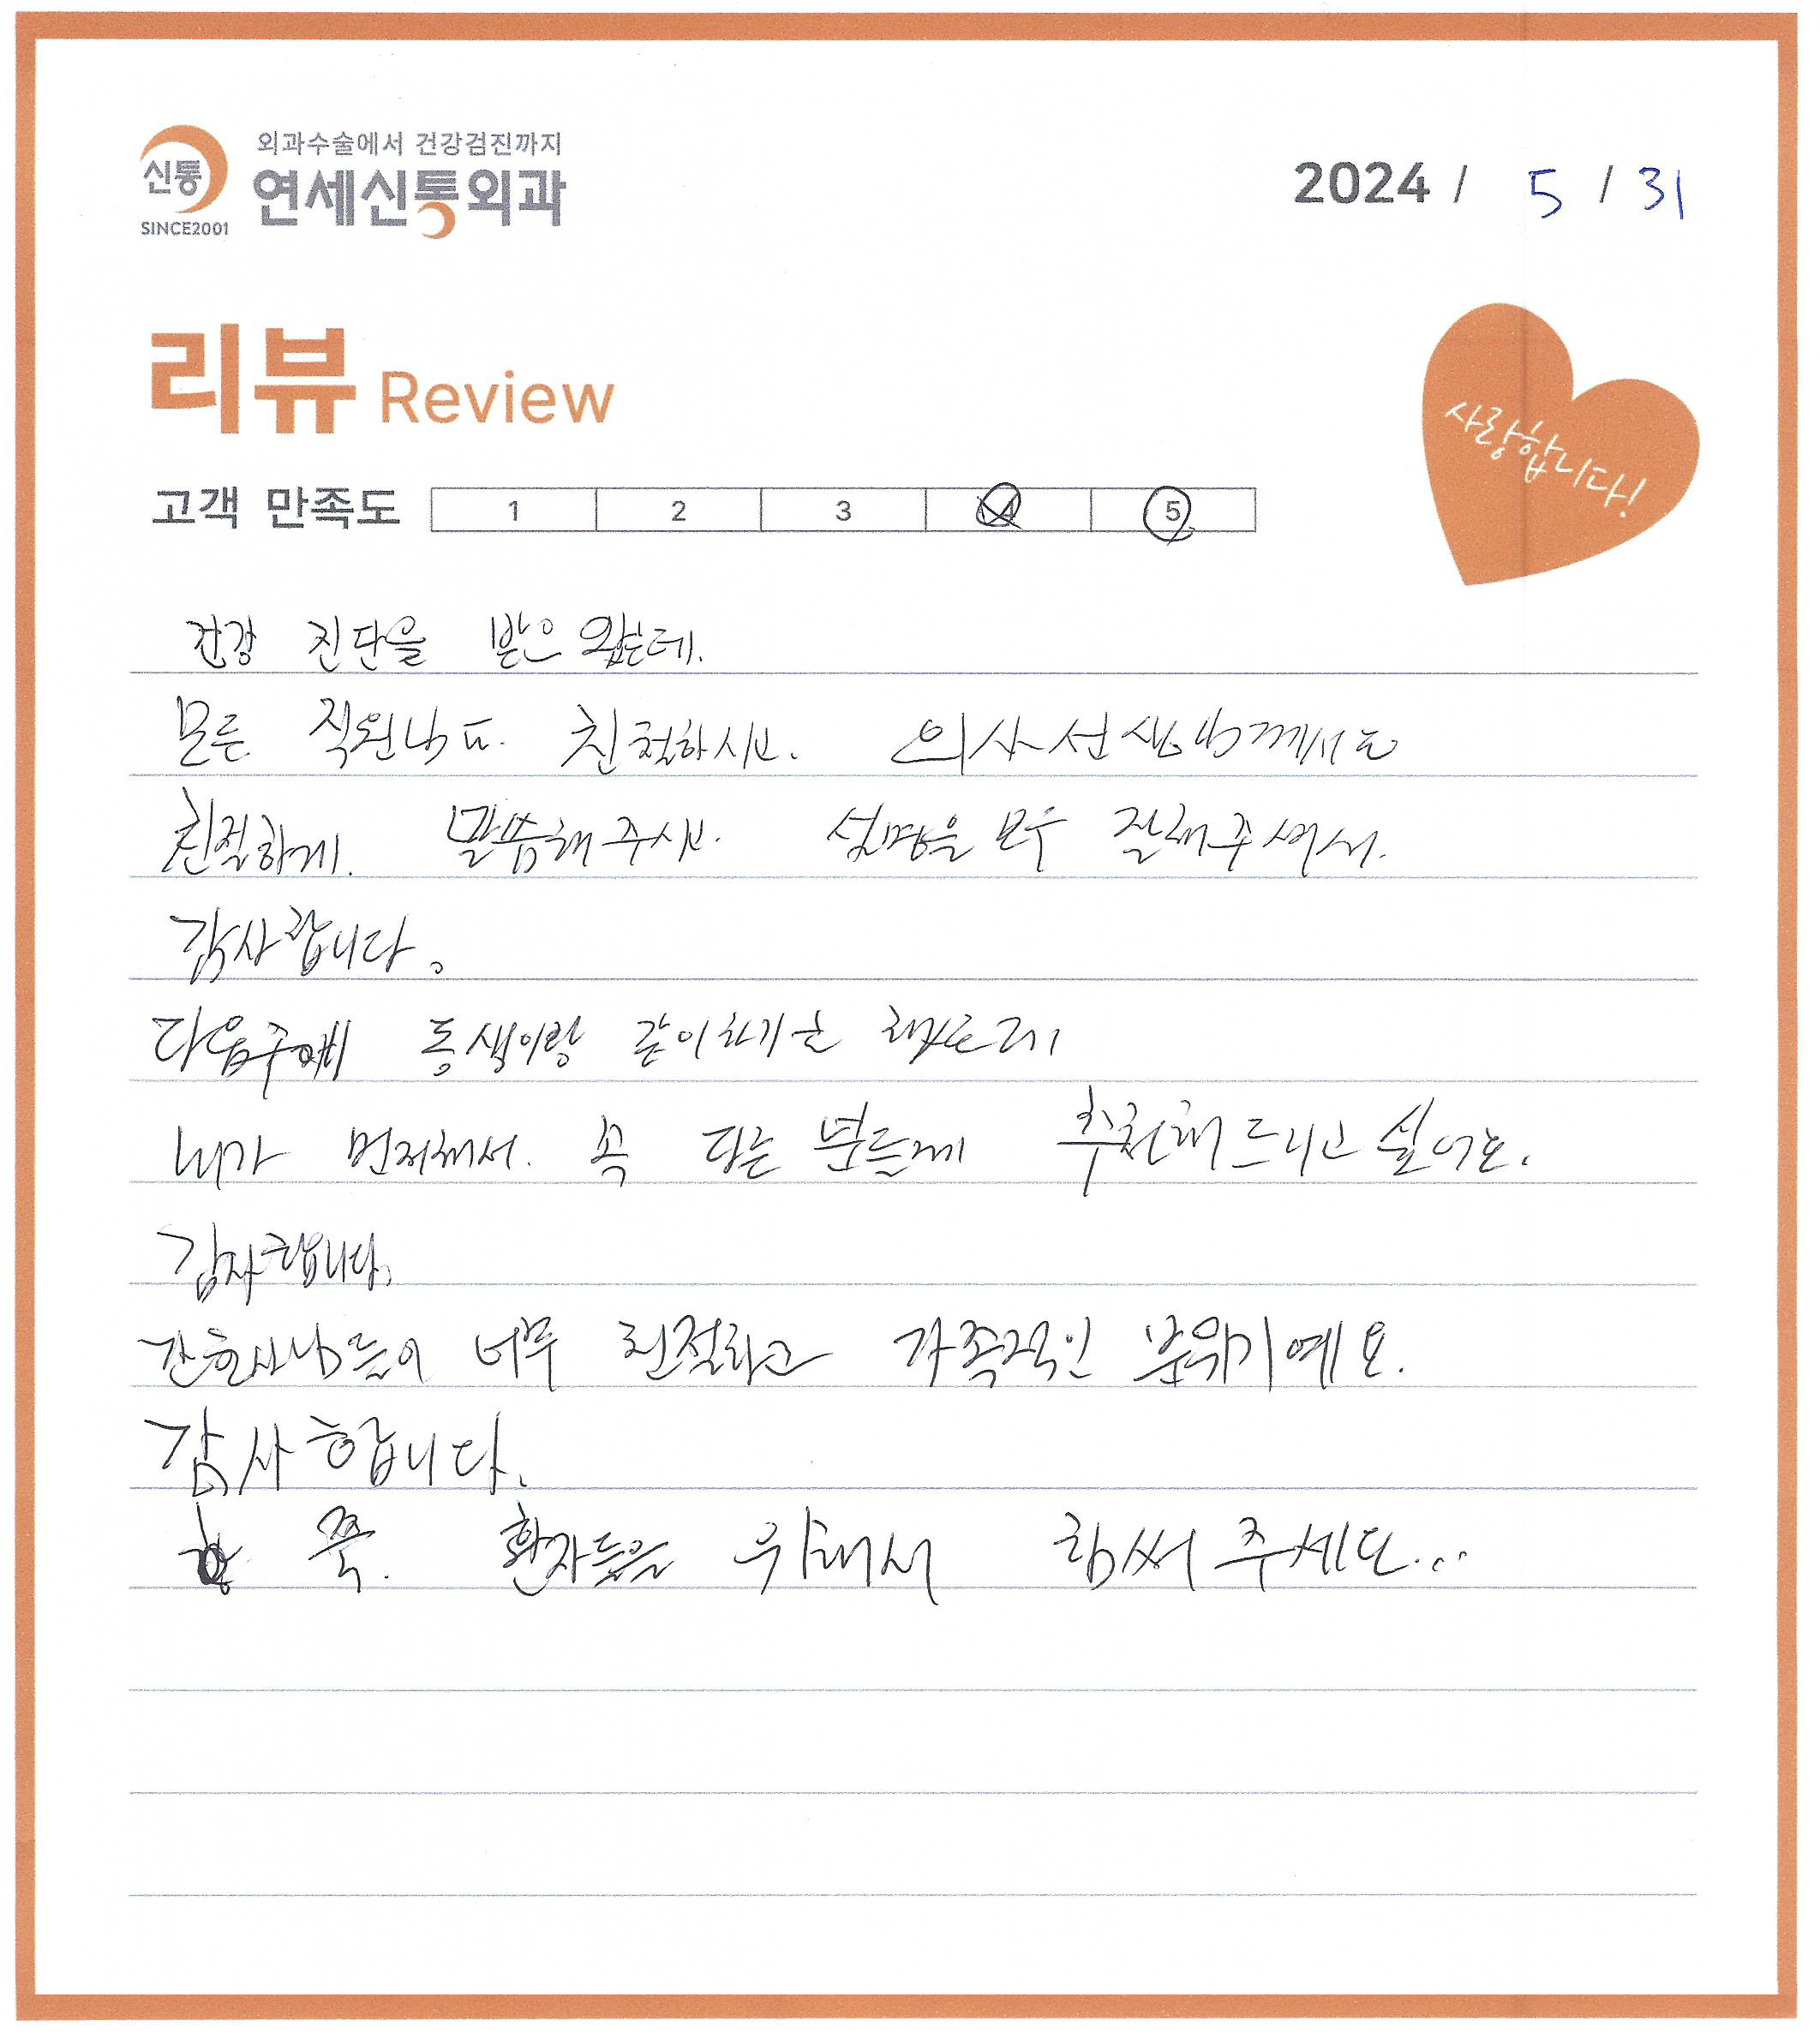 외과수술에서 건강검진까지
신통 연세신통외과
SINCE2001
2024 / 5 / 31
리뷰 Review
사랑합니다!
고객 만족도 1 2 3 4 5
건강 진단을 받으 왔는데.
모든 직원님도. 친절하시고. 의사선생님께서도
친절하게. 말씀해주시고. 설명을 모두 잘해주셔서.
감사합니다.
다음주에 동생이랑 같이하기로 했는데
내가 먼저해서. 꼭 다른 분들께 추천해드리고 싶어요.
감사합니다.
간호사님들이 너무 친절하고 가족적인 분위기예요.
감사합니다.
쭉. 환자들을 위해서 힘써 주세요...